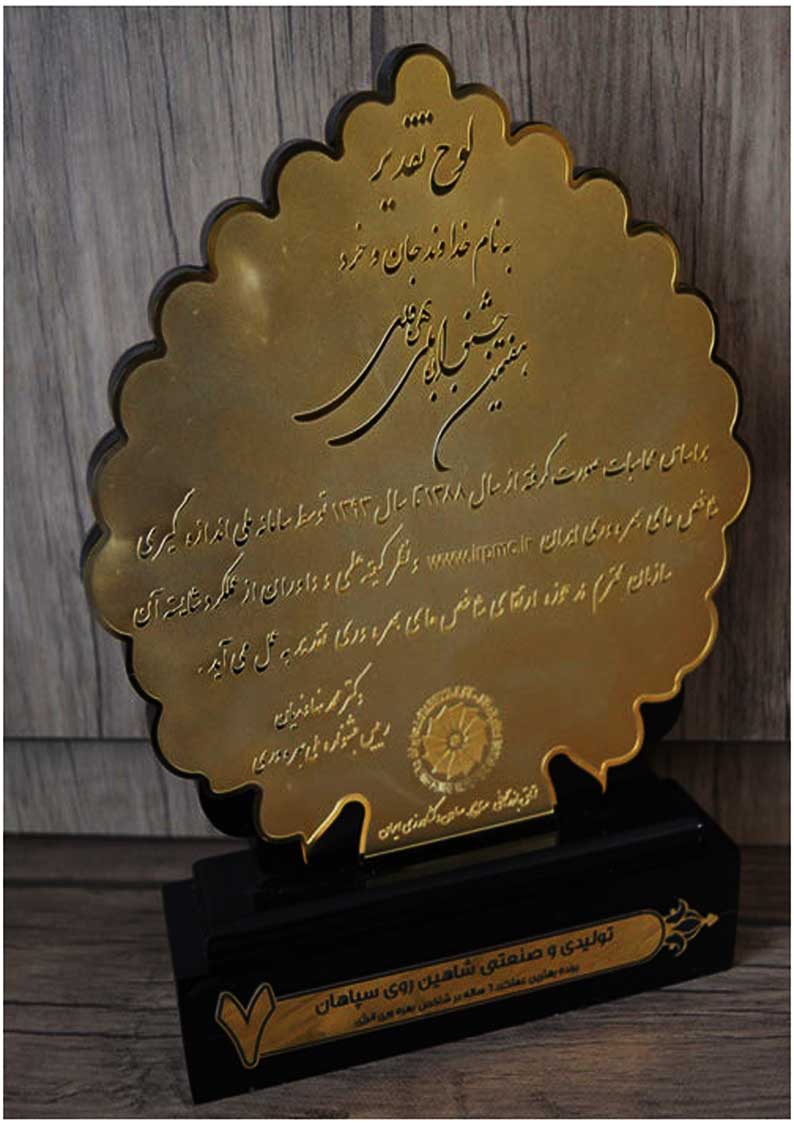 لوح تقدیر
به نام خداوند جان و خرد
هفتمین جشنواره ملی بهره وری
براساس محاسبات صورت گرفته از سال ۱۳۸۸ تا سال ۱۳۹۳ توسط سامانه ملی اندازه گیری
شاخص های بهره وری ایران www.irpmc.ir و نظر کمیته علمی و داوران از عملکرد شایسته آن
سازمان محترم در حوزه ارتقای شاخص های بهره وری تقدیر به عمل می آید .
دکتر محمد نهاوندیان
رییس جشنواره ملی بهره وری
اتاق بازرگانی صنایع معادن و کشاورزی ایران
تولیدی و صنعتی شاهین روی سپاهان
برنده بهترین عملکرد ۶ ساله در شاخص بهره وری انرژی
۷